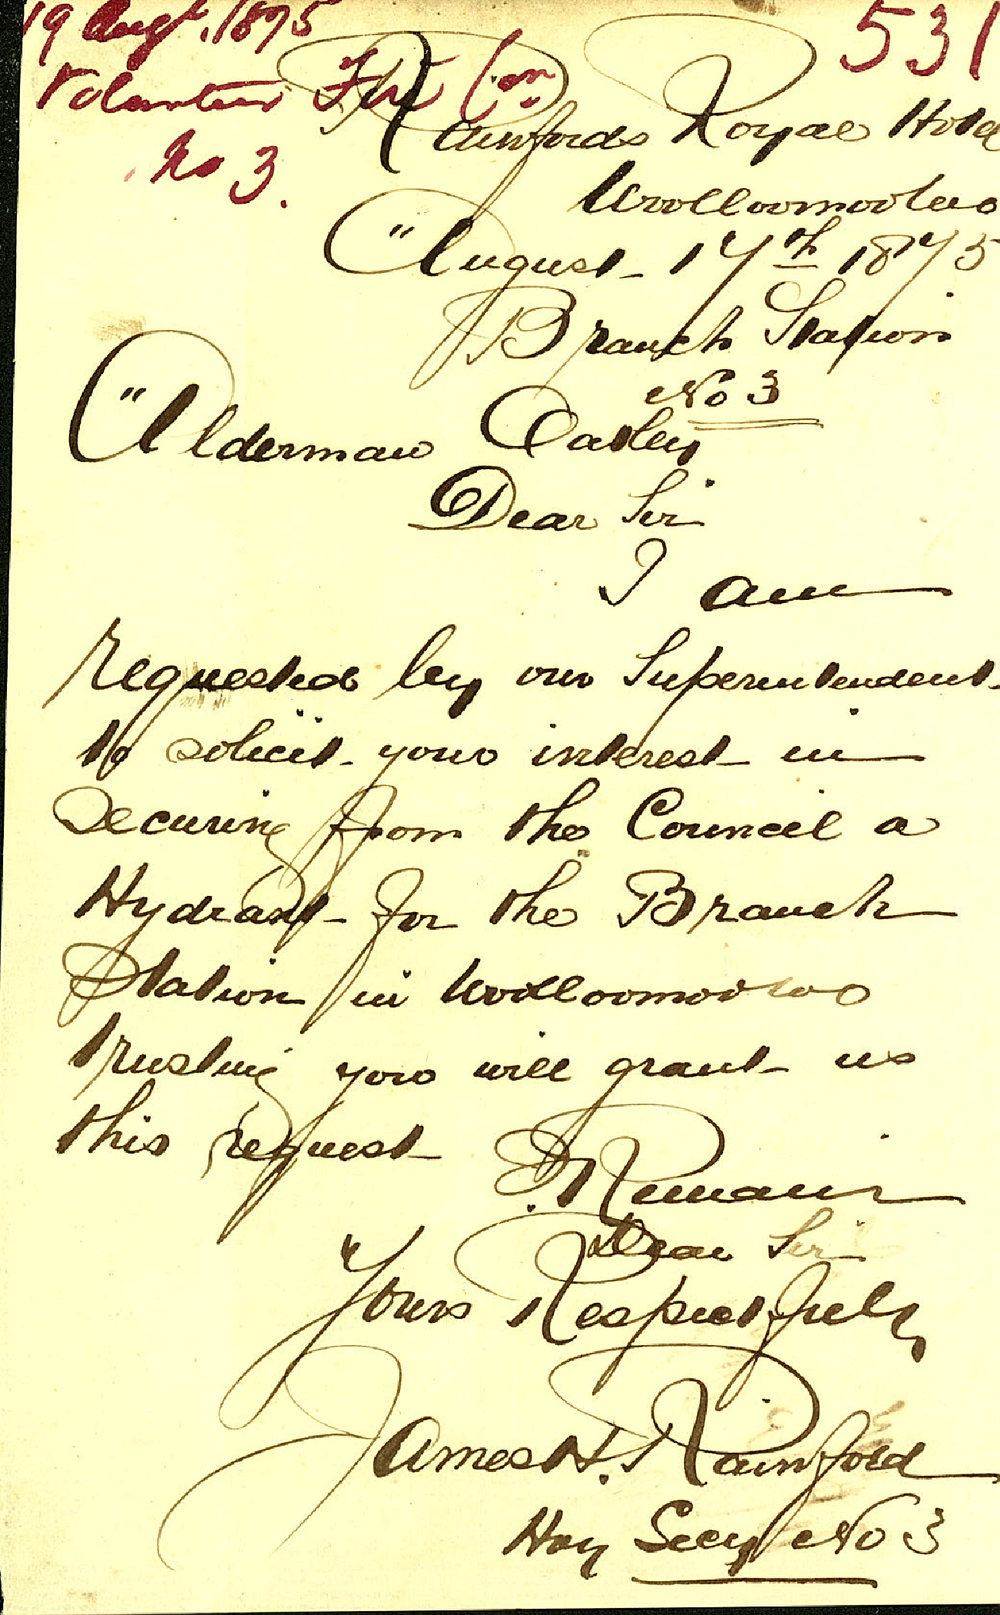 19 Augt. 1875
531
Volunteer Fire Co.
No 3.
Rainfords Royal Hotel
Woolloomooloo
August 17th 1875
Branch Station
No 3
Alderman Oatley
Dear Sir
I am
requested by our Superintendent
to solicit your interest in
securing from the Council a
Hydrant for the Branch
Station in Woolloomooloo
trusting you will grant us
this request
I Remain
Dear Sir
Yours Respectfully
James H. Rainford
Hoy Secy No 3